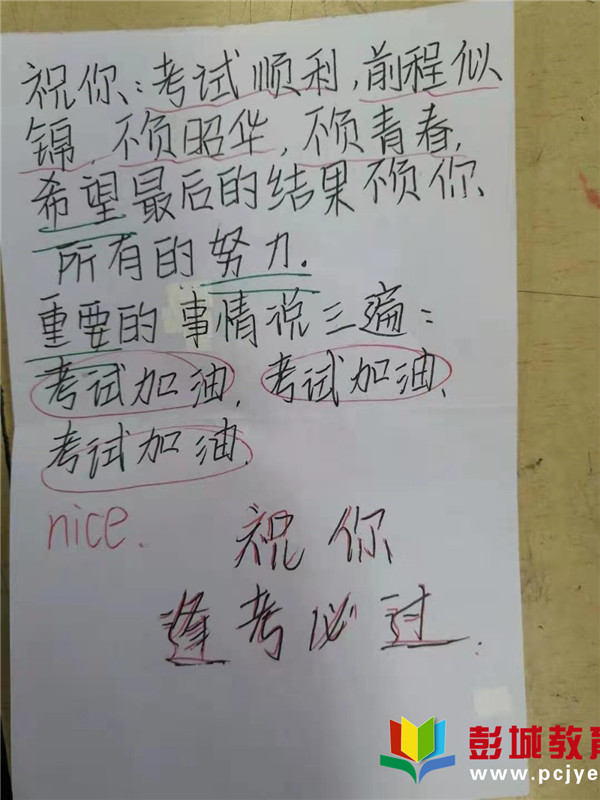 祝你:考试顺利,前程似
锦,不负昭华,不负青春,
希望最后的结果不负你
所有的努力.
重要的事情说三遍:
考试加油,考试加油,
考试加油.
nice.
祝你
逢考必过.
彭城教育
www.pcjye